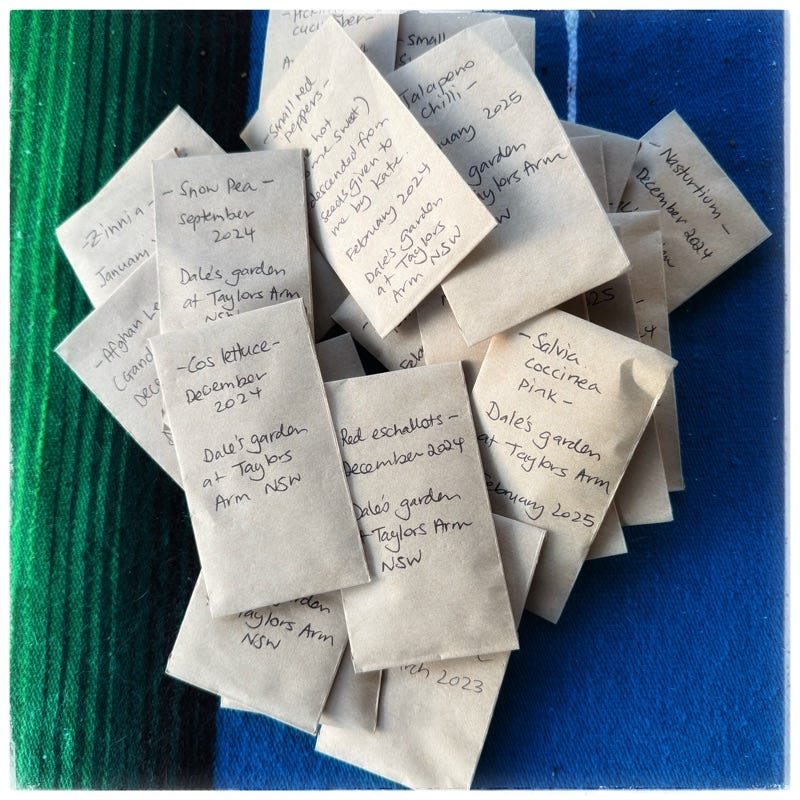 cucumber-
-Small
-Small red
peppers-
hot
me sweet)
descended from
seeds given to
me by Kate.
February 2024
Dale's garden
at Taylors
Arm NSW
Jalapeno
chilli -
2025
garden
Taylors Arm
-Nasturtium -
December 2024
-Zinnia-
January
- Snow Pea -
september
2024
Dale's garden
at Taylors Arm
NSW
-Afghan
(Grand
Dec
-Cos lettuce-
December
2024
Dale's garden
at Taylors
Arm NSW
Red eschallots -
December 2024
Dale's garden
Taylors Arm
NSW
-Salvia
coccinea
pink-
Dale's garden
at Taylors Arm
February 2025
Taylors Arm
NSW
2023